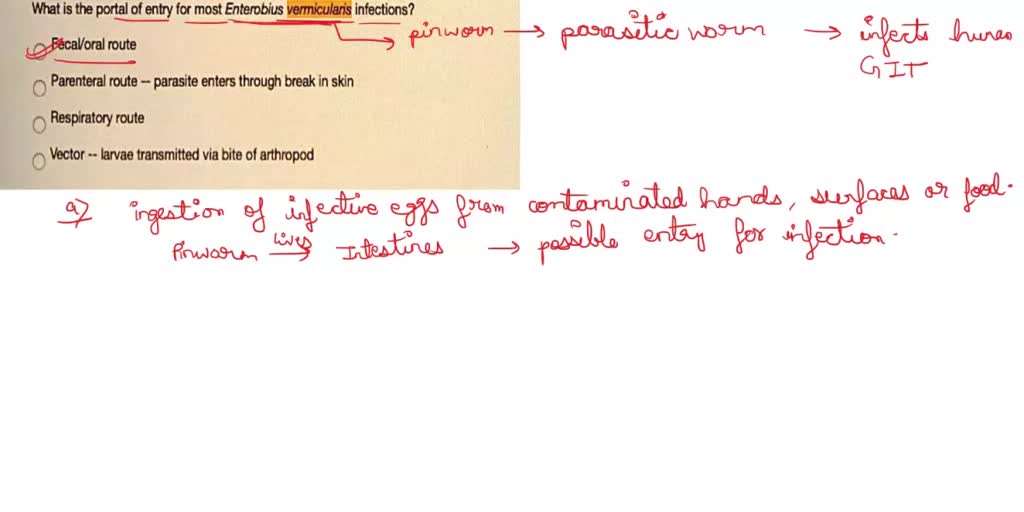 What is the portal of entry for most Enterobius vermicularis infections?
pinworm → parasitic worm → infects human
GIT
Fecal/oral route
Parenteral route -- parasite enters through break in skin
Respiratory route
Vector -- larvae transmitted via bite of arthropod
a) ingestion of infective eggs from contaminated hands, surfaces or food.
Pinworm lives → Intestines → possible entry for infection.